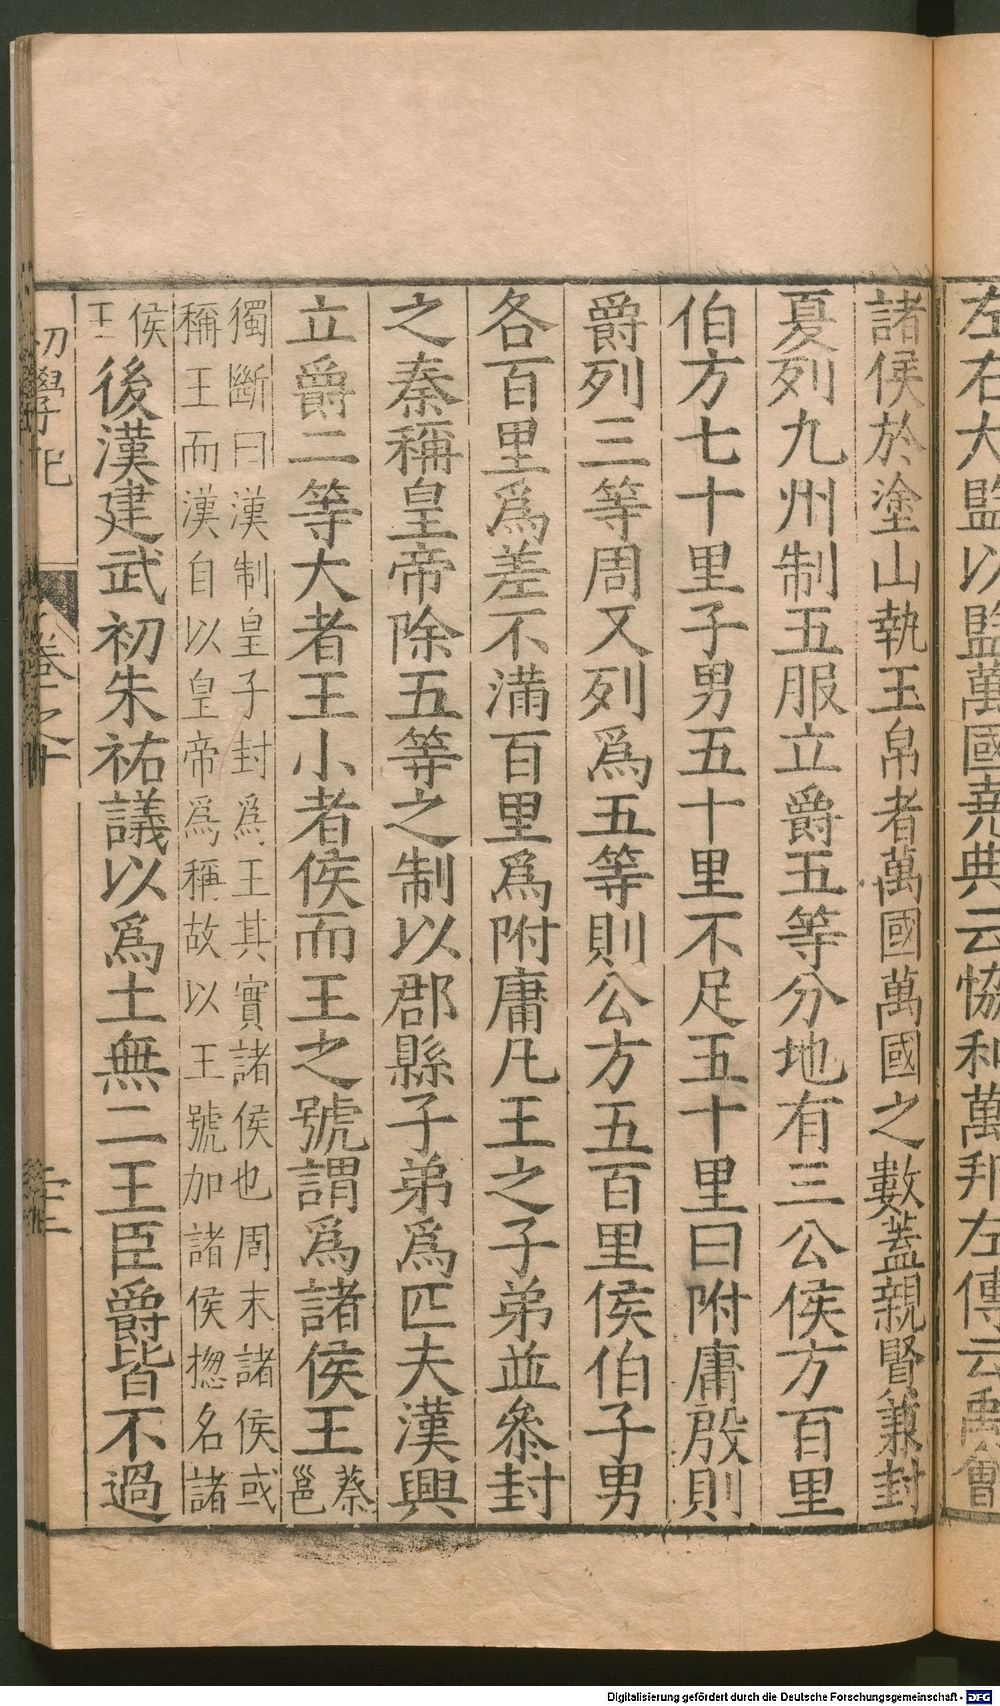 左右大監以監萬國堯典云協和萬邦左傳云禹會
諸侯於塗山執玉帛者萬國萬國之數蓋親賢兼封
夏列九州制五服立爵五等分地有三公侯方百里
伯方七十里子男五十里不足五十里曰附庸殷則
爵列三等周又列爲五等則公方五百里侯伯子男
各百里爲差不滿百里爲附庸凡王之子弟並叅封
之秦稱皇帝除五等之制以郡縣子弟爲匹夫漢興
立爵二等大者王小者侯而王之號謂爲諸侯王蔡邕
獨斷曰漢制皇子封爲王其實諸侯也周末諸侯或
稱王而漢自以皇帝爲稱故以王號加諸侯揔名諸
侯王後漢建武初朱祐議以爲土無二王臣爵皆不過
初學記 卷之十
Digitalisierung gefördert durch die Deutsche Forschungsgemeinschaft - DFG